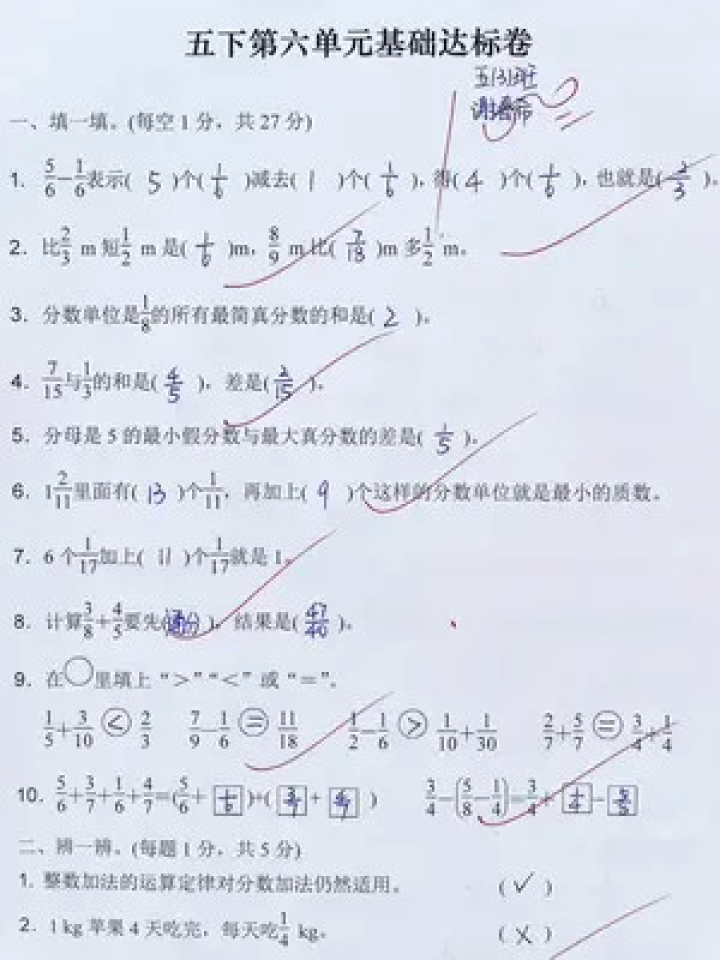 五下第六单元基础达标卷
五(3)班
谢
一、填一填。(每空1分，共27分)
1. 5/6−1/6表示( 5 )个( 1/6 )减去( 1 )个( 1/6 )，得( 4 )个( 1/6 )，也就是( 2/3 )。
2. 比2/3 m 短1/2 m 是( 1/6 )m，8/9 m 比( 7/18 )m 多1/2 m。
3. 分数单位是1/8的所有最简真分数的和是( 2 )。
4. 7/15与1/3的和是( 4/5 )，差是( 2/15 )。
5. 分母是 5 的最小假分数与最大真分数的差是( 1/5 )。
6. 1 2/11里面有( 13 )个1/11，再加上( 9 )个这样的分数单位就是最小的质数。
7. 6 个1/17加上( 11 )个1/17就是 1。
8. 计算3/8+4/5要先(通分)，结果是( 47/40 )。
9. 在○里填上“>”“<”或“=”。
1/5+3/10 < 2/3 7/9−1/6 = 11/18 1/2−1/6 > 1/10+1/30 2/7+5/7 = 3/4+1/4
10. 5/6+3/7+1/6+4/7=(5/6+ 1/6 )+( 3/7 + 4/7 ) 3/4−(5/8−1/4)=3/4+ 1/4 −
二、辨一辨。(每题1分，共5分)
1. 整数加法的运算定律对分数加法仍然适用。 ( ✓ )
2. 1 kg 苹果 4 天吃完，每天吃1/4 kg。 ( X )